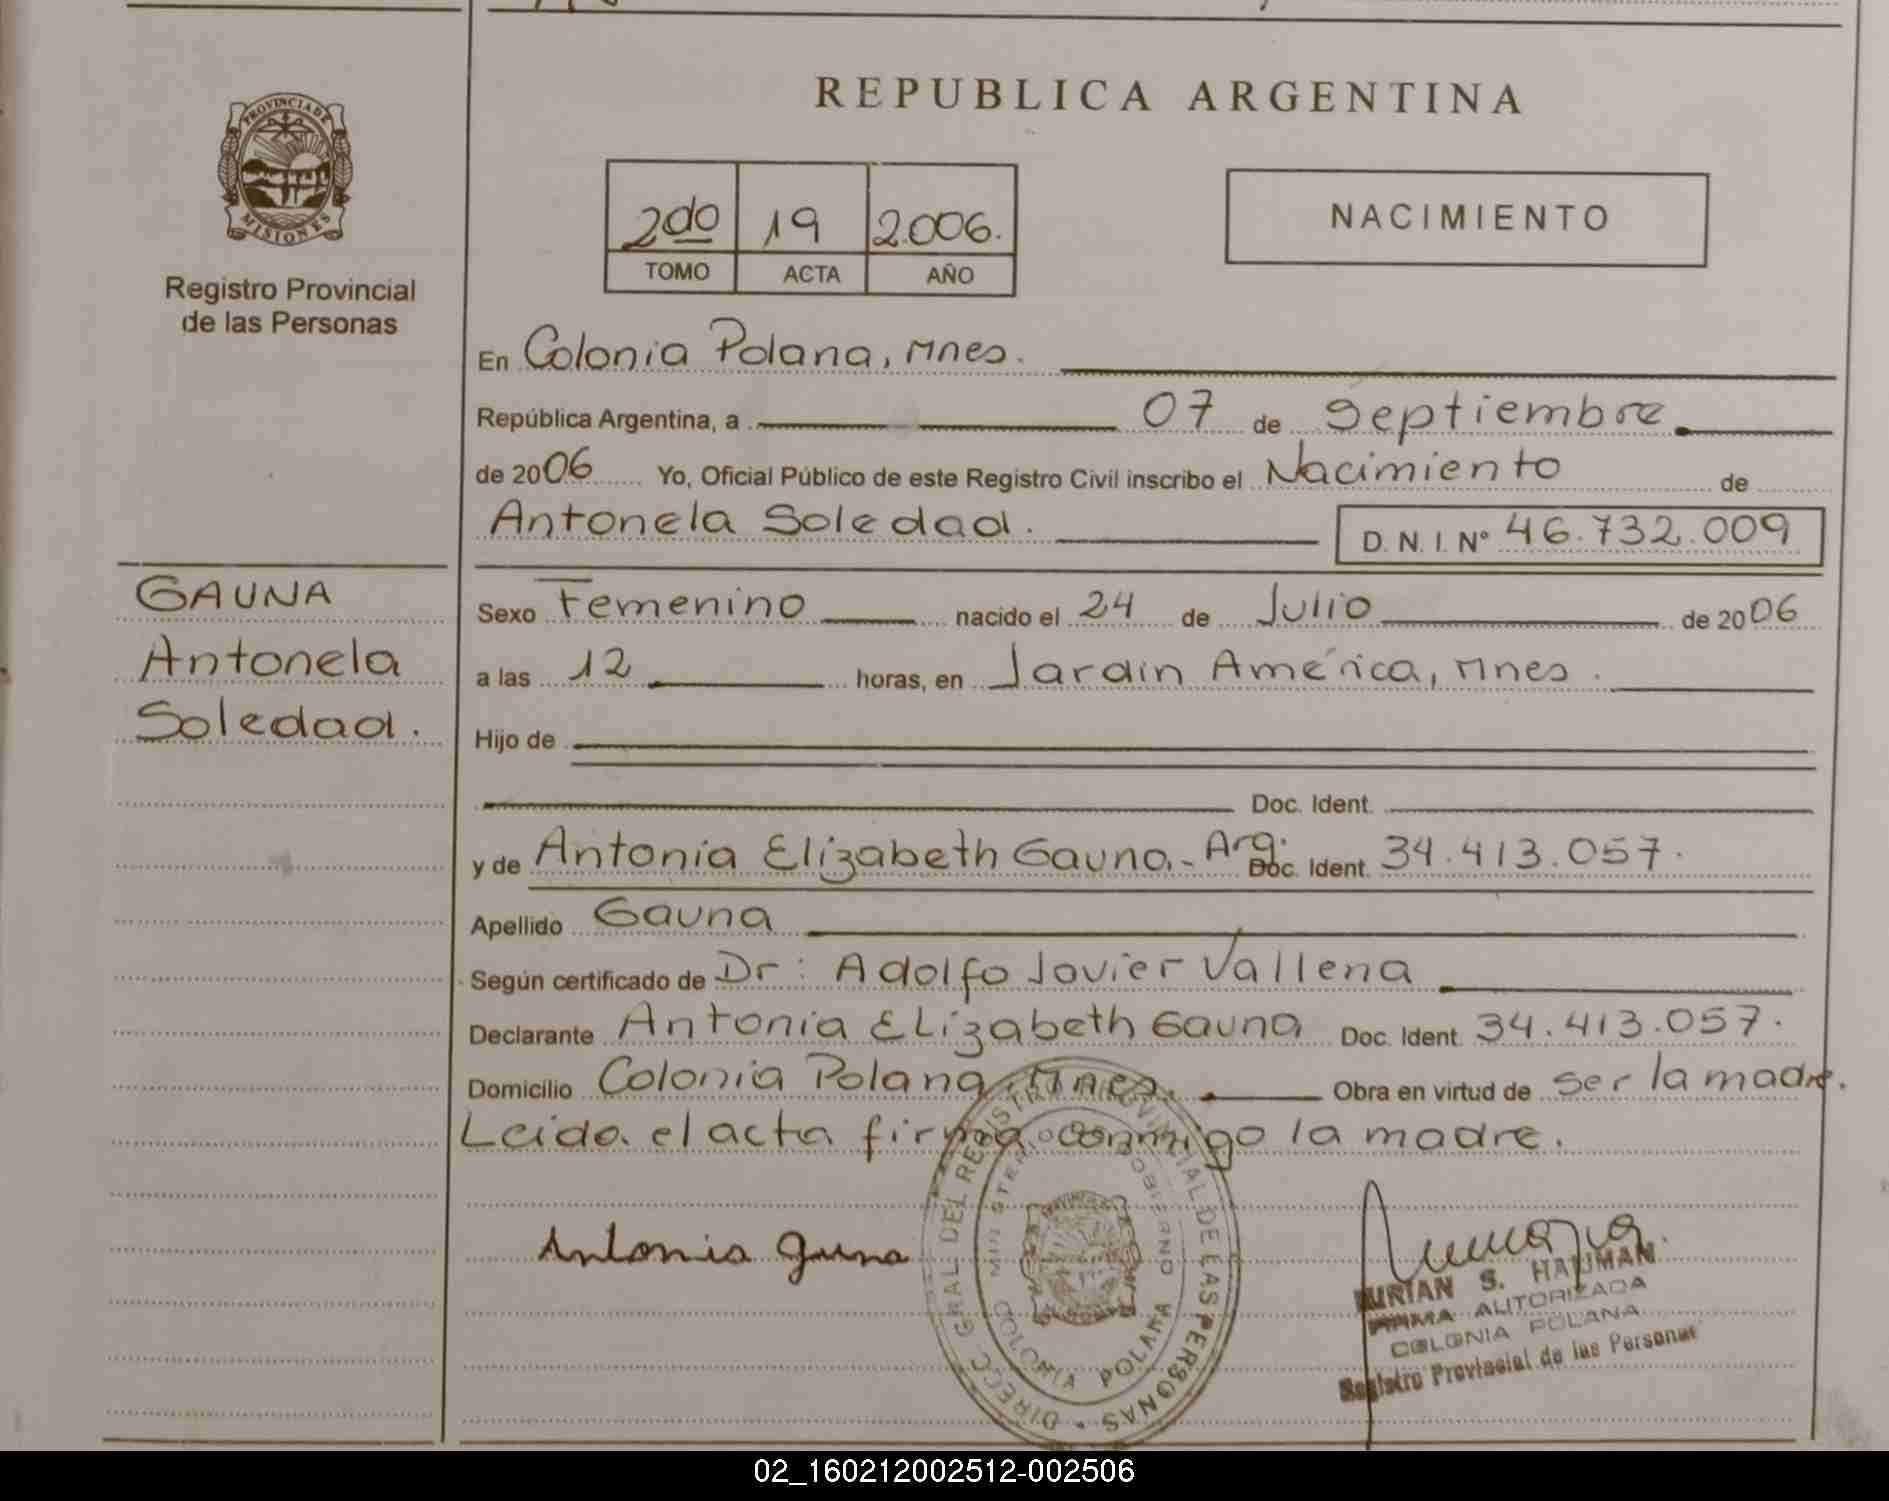 REPUBLICA ARGENTINA
PROVINCIA DE
MISIONES
Registro Provincial
de las Personas
2do 19 2.006.
TOMO ACTA AÑO
NACIMIENTO
En Colonia Polana, Mnes.
República Argentina, a 07 de Septiembre
de 2006 Yo, Oficial Público de este Registro Civil inscribo el Nacimiento de
Antonela Soledad. D. N. I. Nº 46.732.009
GAUNA
Antonela
Soledad.
Sexo Femenino nacido el 24 de Julio de 2006
a las 12 horas, en Jardin América, Mnes.
Hijo de
Doc. Ident.
y de Antonia Elizabeth Gauna.- Arg. Doc. Ident. 34.413.057.
Apellido Gauna
Según certificado de Dr: Adolfo Javier Vallena
Declarante Antonia Elizabeth Gauna Doc. Ident. 34.413.057.
Domicilio Colonia Polana, Mnes. Obra en virtud de ser la madre.
Leida el acta firma conmigo la madre.
Antonia
DIRECC. GRAL DEL REGISTRO PROVINCIAL DE LAS PERSONAS
MINISTERIO GOBIERNO
COLONIA POLANA
MIRIAN S. HAUMAN
FIRMA AUTORIZADA
COLONIA POLANA
Registro Provincial de las Personas
02_160212002512-002506